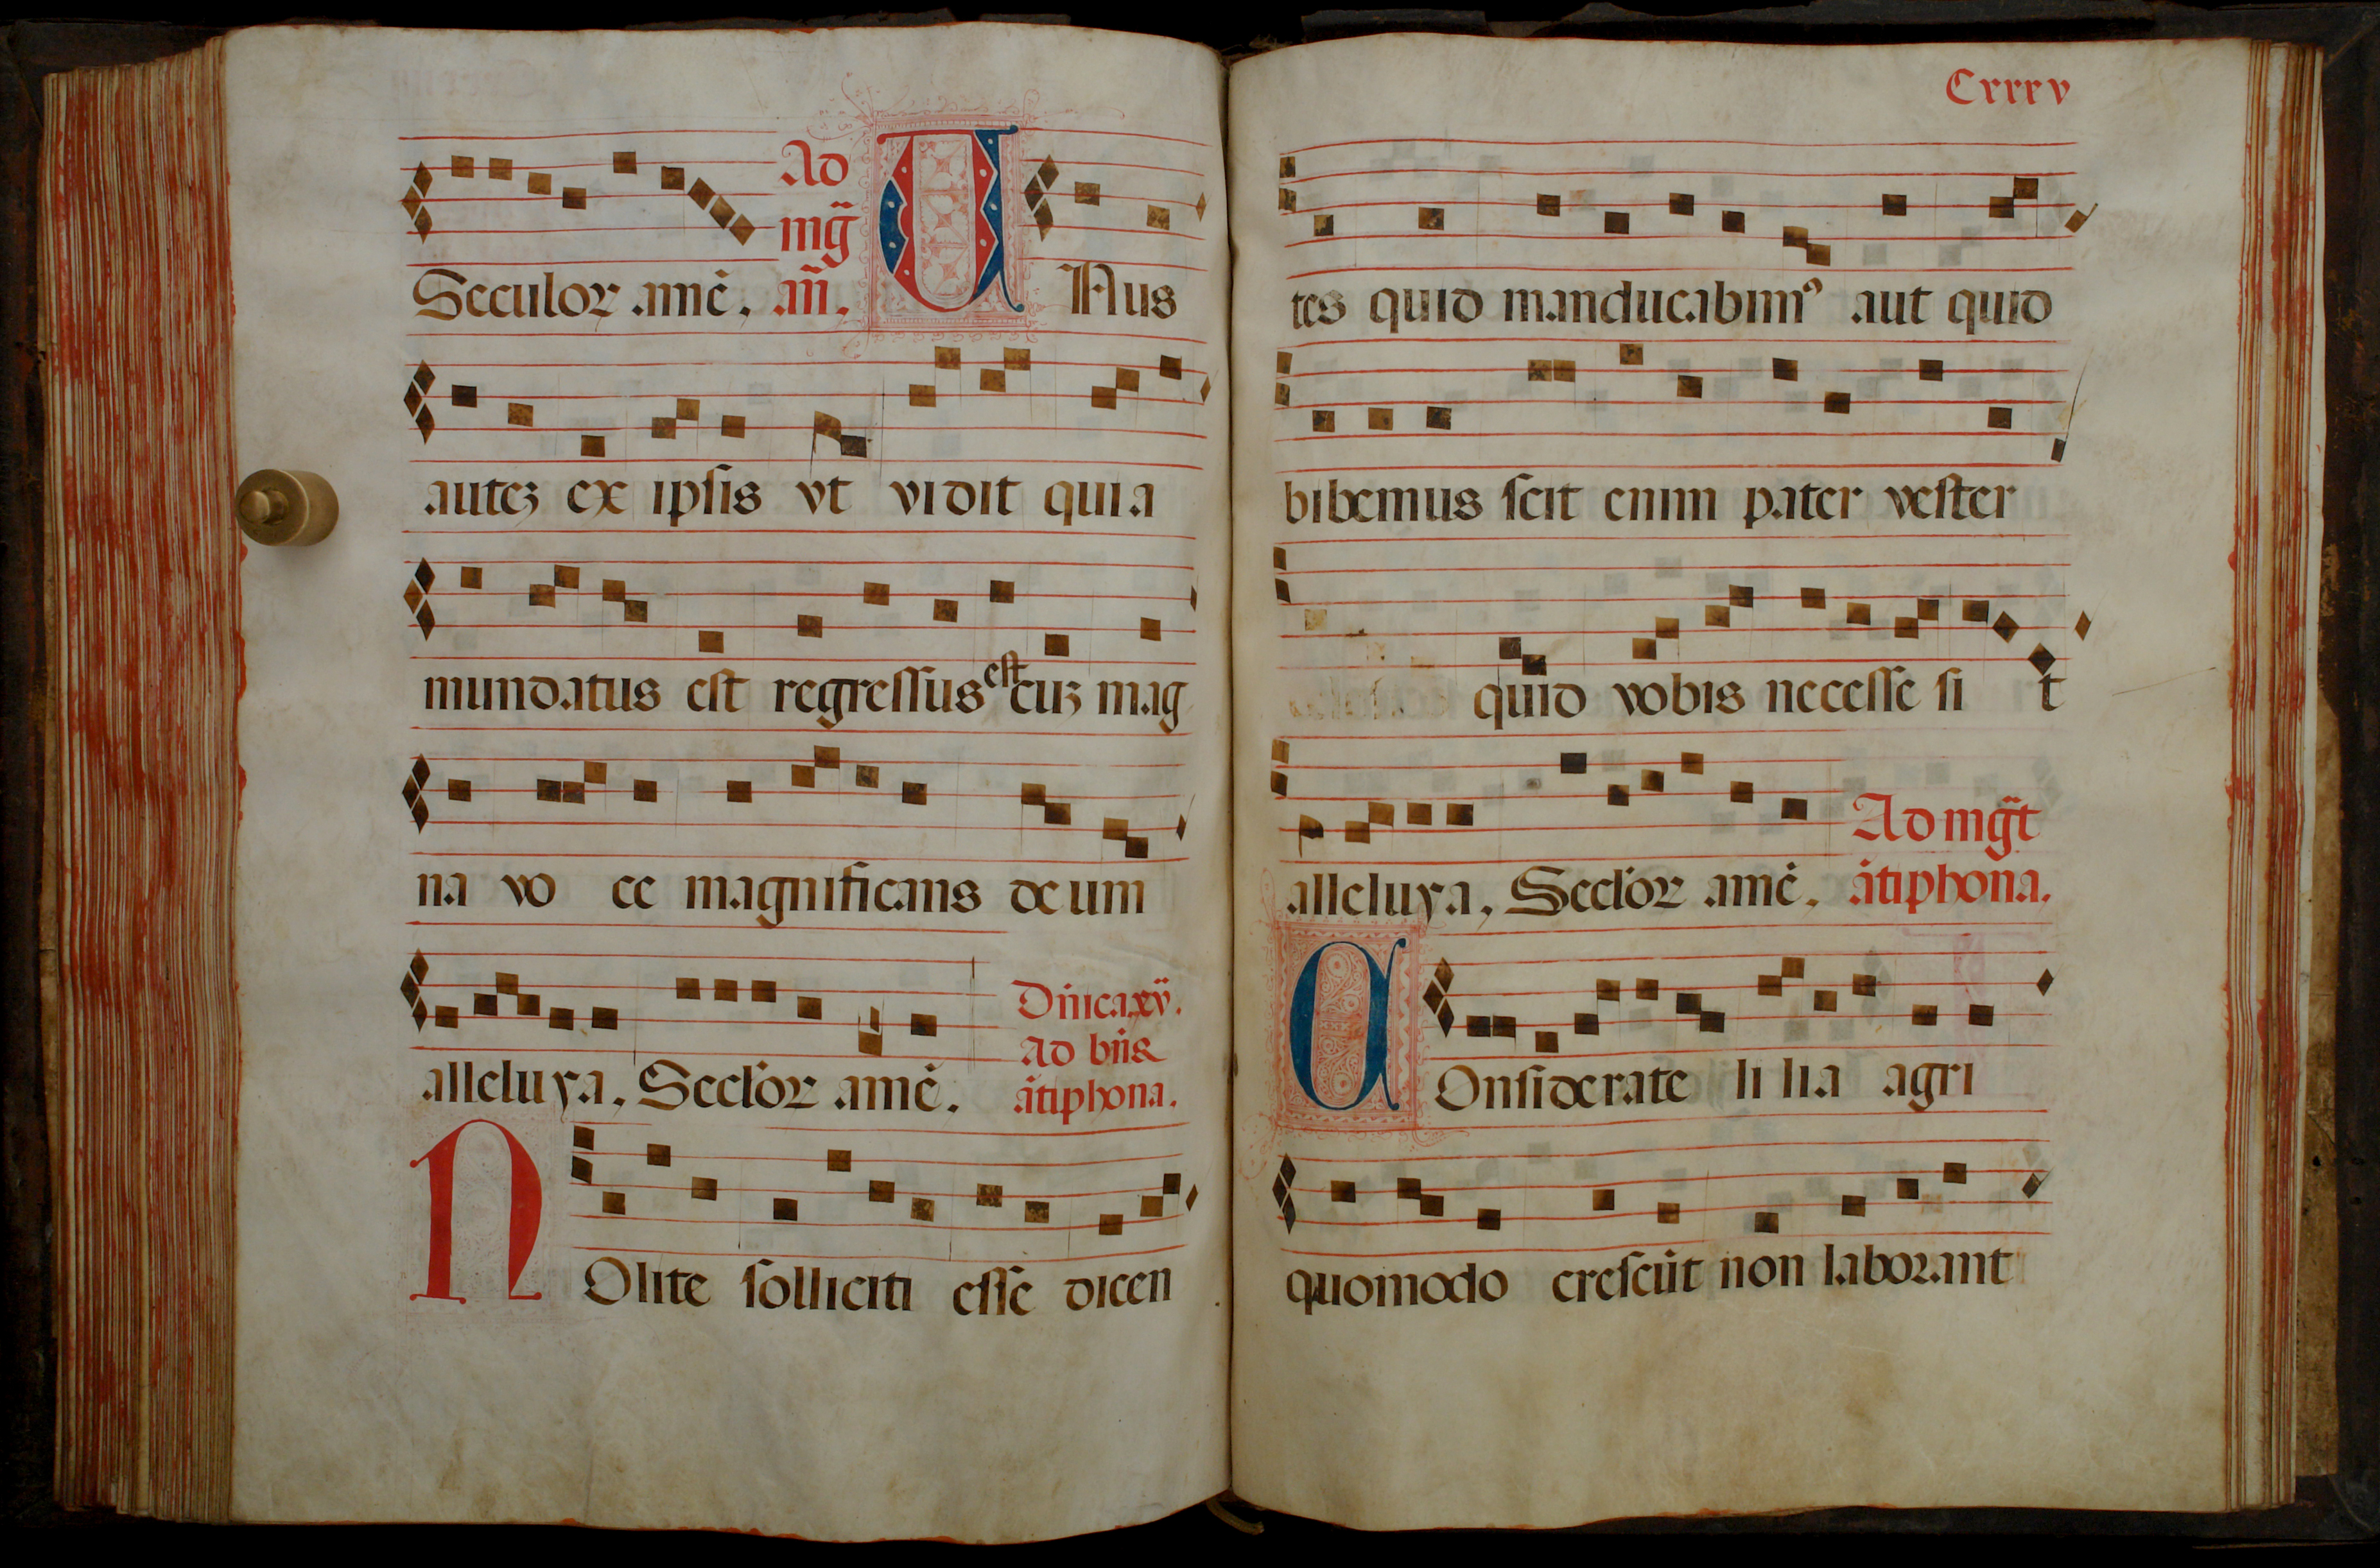 Seculor amē. Ad mg̃ añ. UNus
autez ex ipsis vt vidit quia
mundatus est regressus est cuz mag
na vo ce magnificans deum
alleluya. Secl'or amē. Dñica xv. Ad bñs ātiphona.
NOlite solliciti esse dicen
Cxxxv
tes quid manducabim⁹ aut quid
bibemus scit enim pater vester
quid vobis necesse si t
alleluya. Secl'or amē. Ad mg̃t ātiphona.
COnsiderate li lia agri
quomodo crescūt non laborant